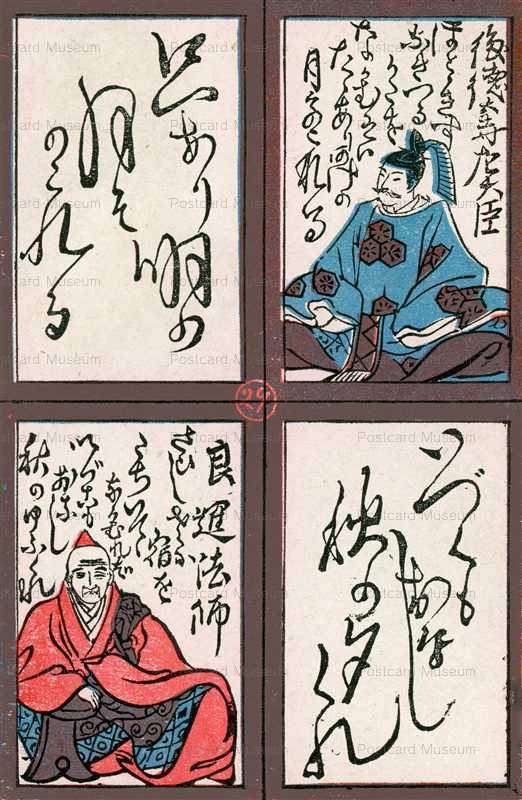 後徳大寺左大臣
ほとゝきす
なきつる
かたを
なかむれは
たゝありあけの
月そのこれる
只あり明の
月そ
のこれる
29
いづくも
おなじ
秋の夕くれ
良暹法師
さひしさに
宿を
たちいてゝ
なかむれば
いづこも
おなし
秋のゆふくれ
Postcard Museum